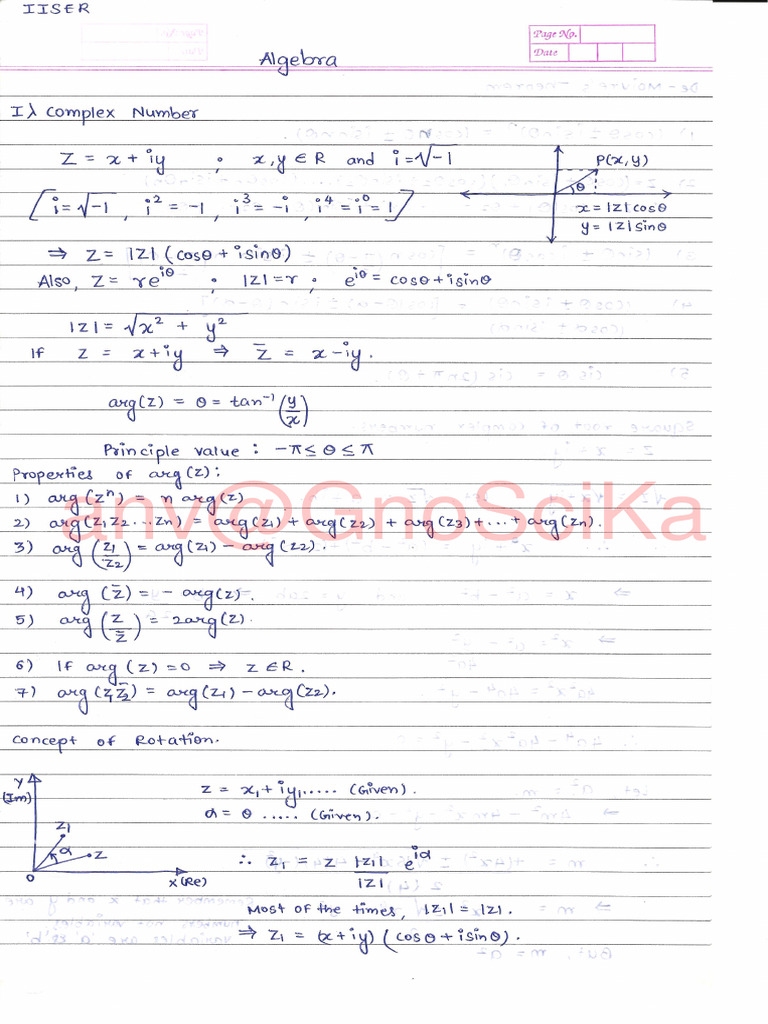 IISER
Page No.
Date
Algebra
I⅄ Complex Number
Z = x + iy ; x, y ∈ R and i = √-1
P(x, y)
θ
[i = √-1, i² = -1, i³ = -i, i⁴ = i⁰ = 1]
x = |Z| cosθ
y = |Z| sinθ
⇒ Z = |Z| (cosθ + isinθ)
Also, Z = re^iθ ; |Z| = r ; e^iθ = cosθ + isinθ
|Z| = √x² + y²
If Z = x + iy ⇒ Z̄ = x - iy.
arg(z) = θ = tan⁻¹ (y/x)
Principle value : -π ≤ θ ≤ π
Properties of arg(z) :
1) arg(zⁿ) = n arg(z)
anv@GnoSciKa
2) arg(z₁z₂...zn) = arg(z₁) + arg(z₂) + arg(z₃) + ... + arg(zn).
3) arg (z₁/z₂) = arg(z₁) - arg(z₂).
4) arg (z̄) = - arg(z).
5) arg (z/z̄) = 2arg(z).
6) If arg (z) = 0 ⇒ z ∈ R.
7) arg(z₁z̄₂) = arg(z₁) - arg(z₂).
Concept of Rotation.
Y
(Im)
z = x₁ + iy₁ ..... (Given).
α = θ ..... (Given).
z₁
α
z
∴ z₁ = z |z₁|/|z| e^iα
O
X (Re)
Most of the times, |z₁| = |z|.
⇒ z₁ = (x + iy) (cosθ + isinθ).